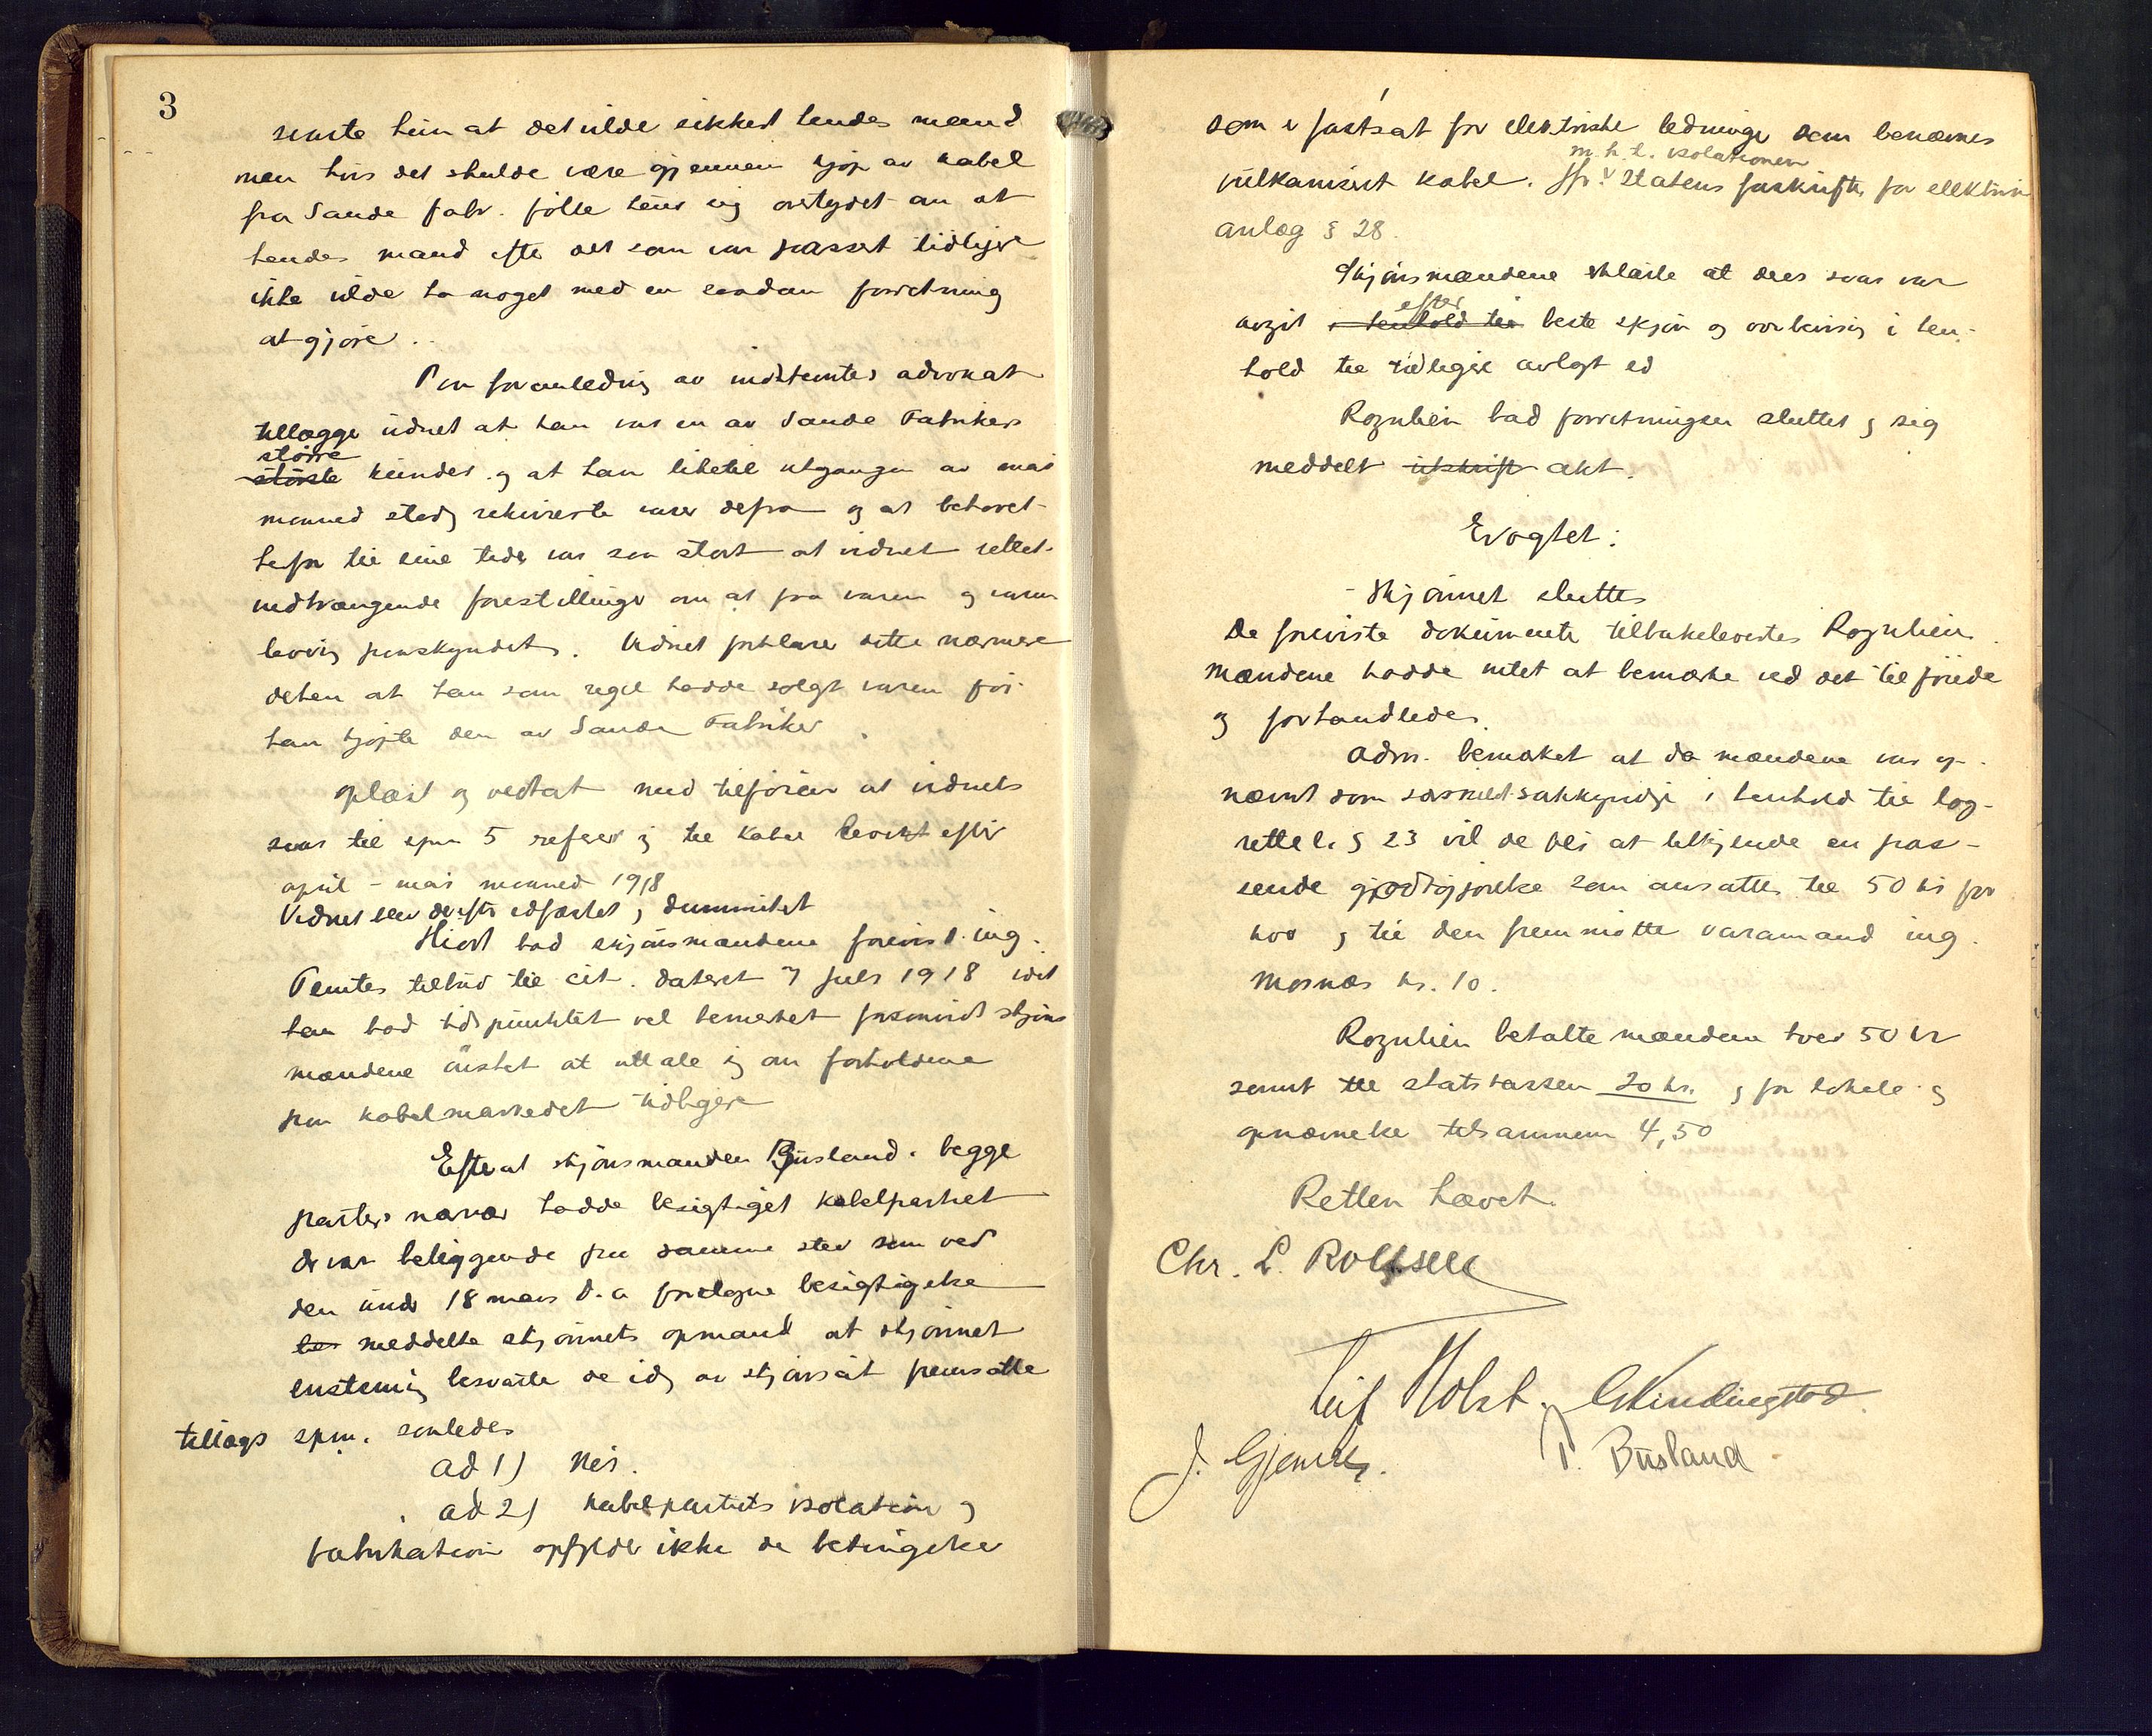 3
svarte hun at det vilde sikkert hendes mand
men hvis det skulde være gjennem kjøp av kabel
fra Sande fabr. følte hun sig overtydet om at
hendes mand efter det som var passert tidligere
ikke vilde ha noget med en saadan forretning
at gjøre.
Paa foranledning av indstevntes advokat
tillægger vidnet at han var en av Sande Fabrikers
større
største kunder og at han liketil utgangen av mai
maaned stadig rekvirerte varer derfra og at behovet
herfor til sine tider var saa stort at vidnet rettet
indtrængende forestillinger om at faa varen og varens
levering paaskyndet. Vidnet forklarer dette nærmere
derhen at han som regel hadde solgt varen før
han kjøpte den av Sande Fabriker.
Oplæst og vedtat med tilføiende at vidnets
svar til spm 5 referer sig til kabel levert efter
april - mai maaned 1918
Vidnet blev derefter edfæstet og dimmitert
Hiort bad skjønsmændene forevist ing.
tilbud til cit. dateret 7 juli 1918 idet
han bad tidspunktet vel bemerket forsaavidt skjøns
mændene ønsket at uttale sig om forholdene
paa kabelmarkedet tidligere
Efterat skjønsmanden Büsland i begge
parters nærvær hadde besigtiget kabelpartiet
der var beliggende paa samme sted som ved
den under 18 mars d.a foretagne besigtigelse
meddelte skjønnets opmand at skjønnet
enstemmig besvarte de idag av skjønscit fremsatte
tillægs spm. saaledes
ad 1) Nei.
ad 2) Kabelpartiets isolation og
fabrikation opfylder ikke de betingelser
som er fastsat for elektriske ledninger som benævnes
m. h. t. isolationen
vulkanisert kabel. Jfr. Statens forskrifter for elektriske
anlæg § 28.
Skjønsmændene erklærte at deres svar var
efter
avgit i henhold til beste skjøn og overbevisning i hen-
hold til tidligere avlagt ed
Rognlien bad forretningen sluttet og sig
meddelt utskrift akt.
Eragtet:
Skjønnet sluttes
De foreviste dokumenter tilbakelevertes Rognlien.
Mændene hadde intet at bemerke ved det tilførte
og forhandlede.
Adm. bemerket at da mændene var op-
nævnt som særskilt sakkyndige i henhold til lag-
rettel. § 23 vil de bli at tilkjende en pas-
sende godtgjørelse som ansattes til 50 kr for
hver og til den fremmøtte varamand ing.
Mosnæs kr. 10.
Rognlien betalte mændene hver 50 kr
samt til statskassen 20 kr. og for lokale og
opnævnelse tilsammen 4,50
Retten hævet.
Chr. L. Rolfsen
Leif Holst. G Kindingstad
J. Gjemre. T. Büsland